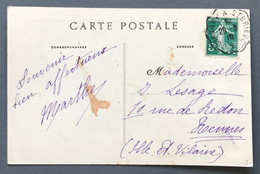 CARTE POSTALE
CORRESPONDANCE
ADRESSE
Souvenir
bien affectueux
Marthe
Mademoiselle
J. Lesage
10 rue de Redon
Rennes
(Ille. Et. Vilaine)